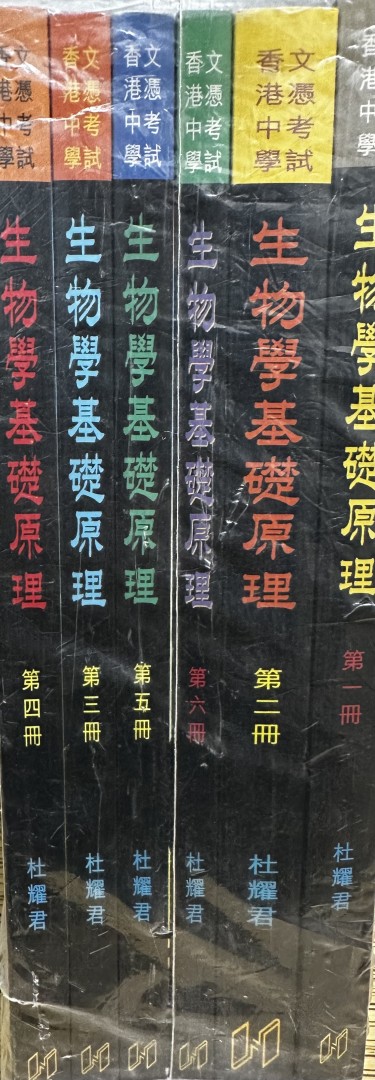 香港中學
文憑考試
生物學基礎原理
第四冊
杜耀君
香港中學
文憑考試
生物學基礎原理
第三冊
杜耀君
香港中學
文憑考試
生物學基礎原理
第五冊
杜耀君
香港中學
文憑考試
生物學基礎原理
第六冊
杜耀君
香港中學
文憑考試
生物學基礎原理
第二冊
杜耀君
香港中學
生物學基礎原理
第一冊
杜耀君